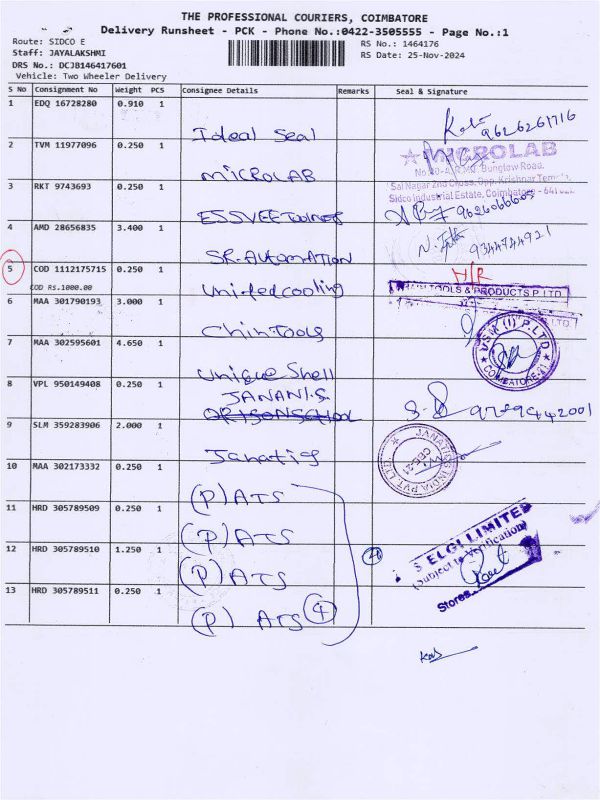 THE PROFESSIONAL COURIERS, COIMBATORE
Delivery Runsheet - PCK - Phone No.:0422-3505555 - Page No.:1
Route: SIDCO E
RS No.: 1464176
Staff: JAYALAKSHMI
RS Date: 25-Nov-2024
DRS No.: DCJB146417601
Vehicle: Two Wheeler Delivery
S No Consignment No Weight PCS Consignee Details Remarks Seal & Signature
1 EDQ 16728280 0.910 1
Ideal Seal 9626261716
2 TVM 11977096 0.250 1
MICROLAB
MICROLAB
Bunglow Road,
Sai Nagar 2nd Cross, Opp. Krishnar Temple,
Sidco Industrial Estate, Coimbatore - 641
3 RKT 9743693 0.250 1
4 AMD 28656835 3.400 1
SR. Automation 9344744921
5 COD 1112175715 0.250 1
COD Rs.1000.00
Unifedcooling
TOOLS & PRODUCTS P LTD
6 MAA 301790193 3.000 1
Chintools
7 MAA 302595601 4.650 1
Unique Shell
(I) P. LTD
COIMBATORE
8 VPL 950149408 0.250 1
JANANI.S
9 SLM 359283906 2.000 1
Janatics
JANATICS INDIA PVT. LTD.
10 MAA 302173332 0.250 1
(P) ATS
11 HRD 305789509 0.250 1
(P) ATS
12 HRD 305789510 1.250 1
(P) ATS
13 HRD 305789511 0.250 1
(P) ATS 4
4
ELGI LIMITED
(Subject to Verification)
Stores